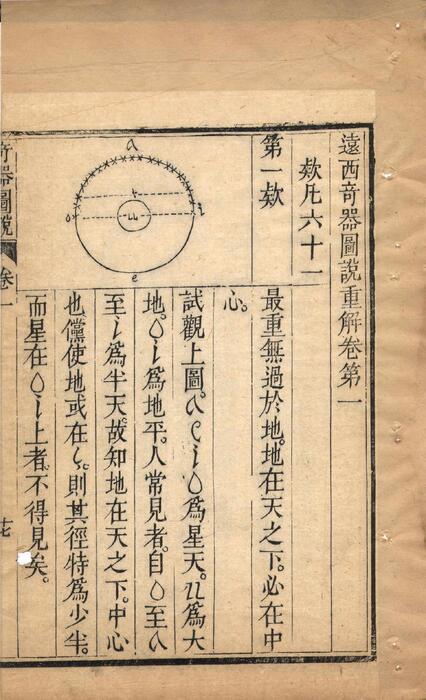 遠西竒器圖說重解卷第一
欵凡六十一
第一欵
a
o
e
最重無過於地。地在天之下。必在中
心。
試觀上圖。a e i o爲星天。u爲大
地。o i爲地平。人常見者。自o至a
至i爲半天。故知地在天之下。中心
也。儻使地或在r。則其徑特爲少半。
而星在o i上者。不得見矣。
竒器圖說
卷一